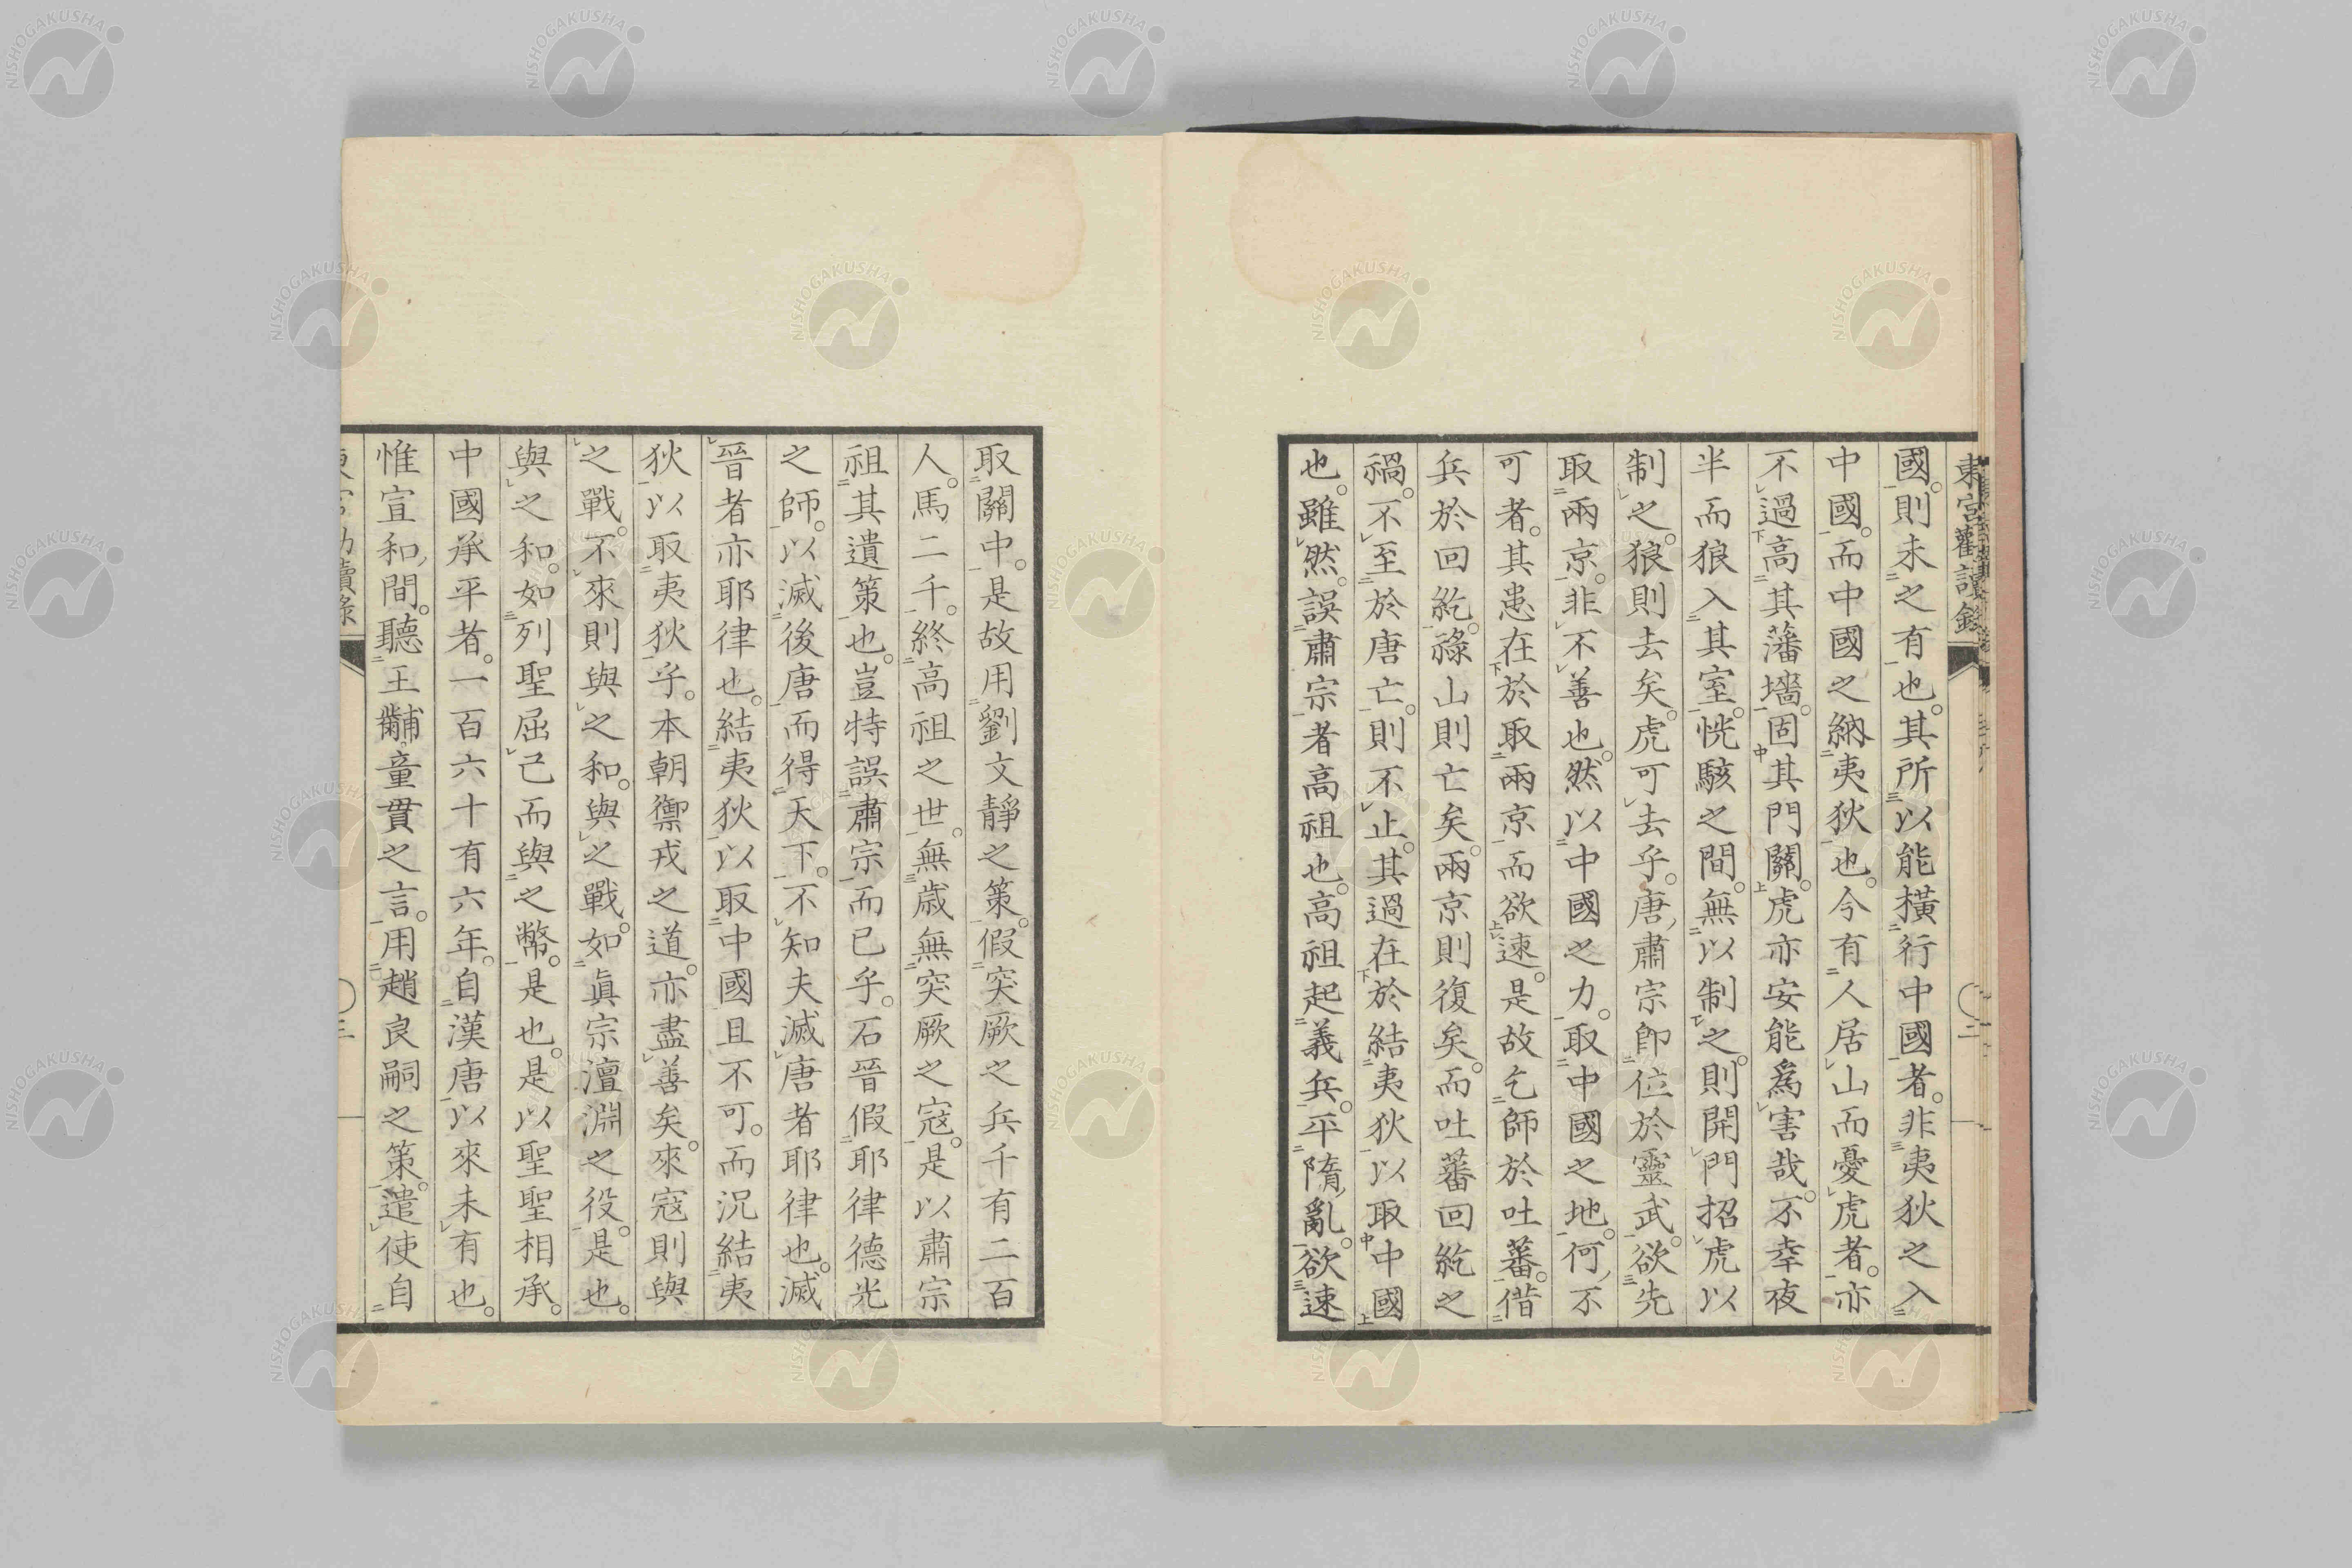 東宮勸讀錄
二
國。則未之有也。其所以能橫行中國者。非夷狄之入
中國。而中國之納夷狄也。今有人居山而憂虎者。亦
不過高其藩墻。固其門關。虎亦安能爲害哉。不幸夜
半而狼入其室。恍駭之間。無以制之。則開門招虎以
制之。狼則去矣。虎可去乎。唐肅宗卽位於靈武。欲先
取兩京。非不善也。然以中國之力。取中國之地。何不
可者。其患在於取兩京而欲速。是故乞師於吐蕃。借
兵於回紇。祿山則亡矣。兩京則復矣。而吐蕃回紇之
禍。不至於唐亡。則不止。其過在於結夷狄以取中國
也。雖然。誤肅宗者高祖也。高祖起義兵。平隋亂。欲速
取關中。是故用劉文靜之策。假突厥之兵千有二百
人。馬二千。終高祖之世。無歲無突厥之寇。是以肅宗
祖其遺策也。豈特誤肅宗而已乎。石晉假耶律德光
之師。以滅後唐而得天下。不知夫滅唐者耶律也。滅
晉者亦耶律也。結夷狄以取中國且不可。而況結夷
狄以取夷狄乎。本朝禦戎之道。亦盡善矣。來寇則與
之戰。不來則與之和。與之戰。如眞宗澶淵之役。是也。
與之和。如列聖屈己而與之幣。是也。是以聖聖相承。
中國承平者。一百六十有六年。自漢唐以來未有也。
惟宣和間。聽王黼童貫之言。用趙良嗣之策。遣使自
三
NISHOGAKUSHA